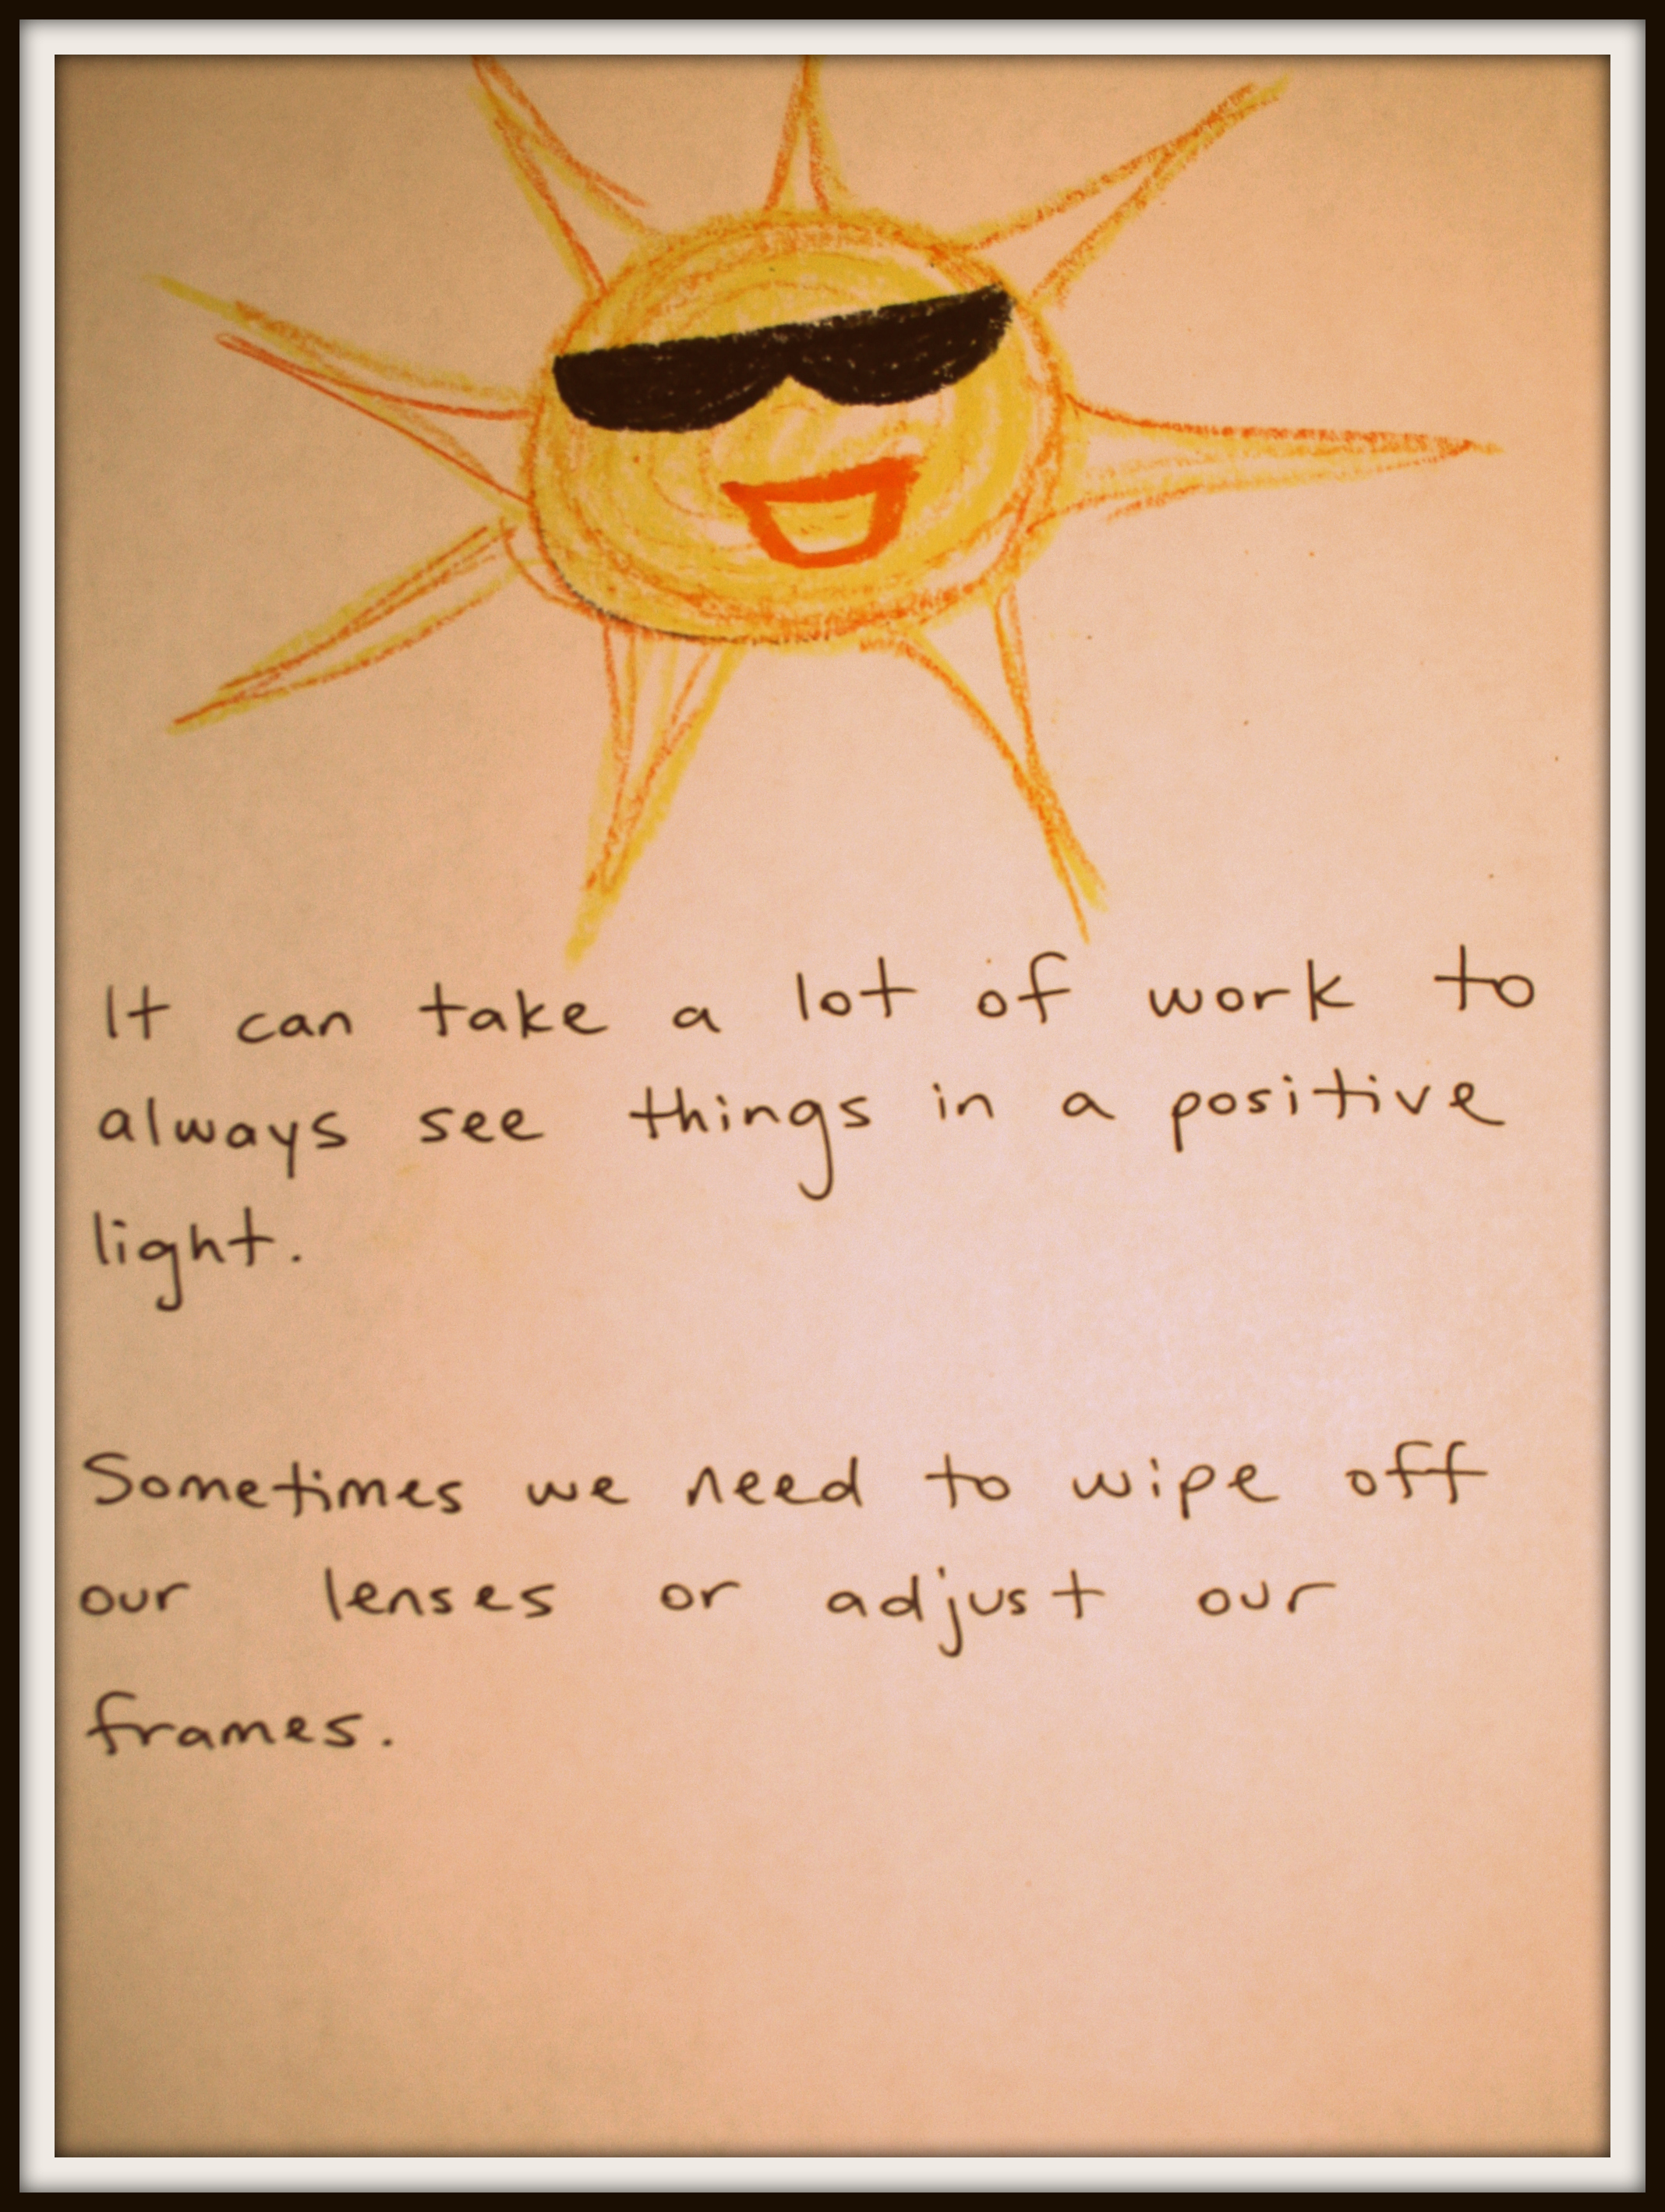 It can take a lot of work to
always see things in a positive
light.
Sometimes we need to wipe off
our lenses or adjust our
frames.